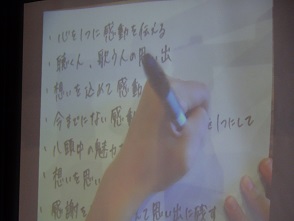 ・心を1つに感動を伝える
・聴く人、歌う人の思い出
・想いを込めて感動
・今までにない感動 と1つにして
・八頭中の魅力
・想いを思い
・感謝を て思い出に残す